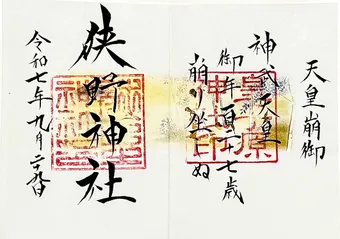 天皇崩御
神武天皇
御年百二十七歳
崩り坐しぬ
皇子原
神社印
狭野神社
令和七年九月二十日